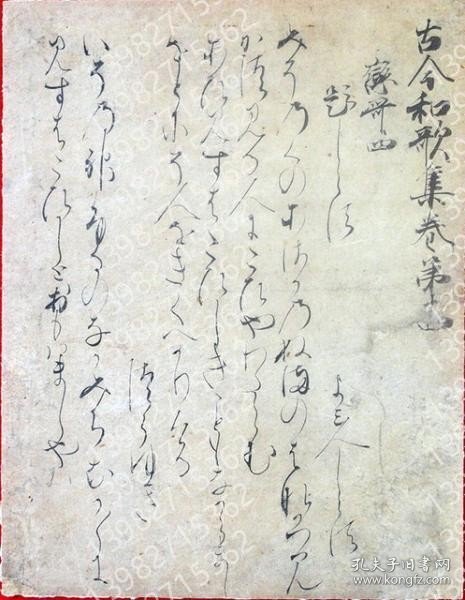 古今和歌集巻第十四
戀哥四
題しらす
よみ人しらす
みちのくのあさかのぬまのはなかつみ
かつみる人にこひやわたらむ
あひみすはこひしきこともなからまし
をとにそ人をきくへかりける
つらゆき
いその神ふるのなかみちなか〱に
みすはこひしとおもはましやは
13982715362
孔夫子旧书网
www.kongfz.com